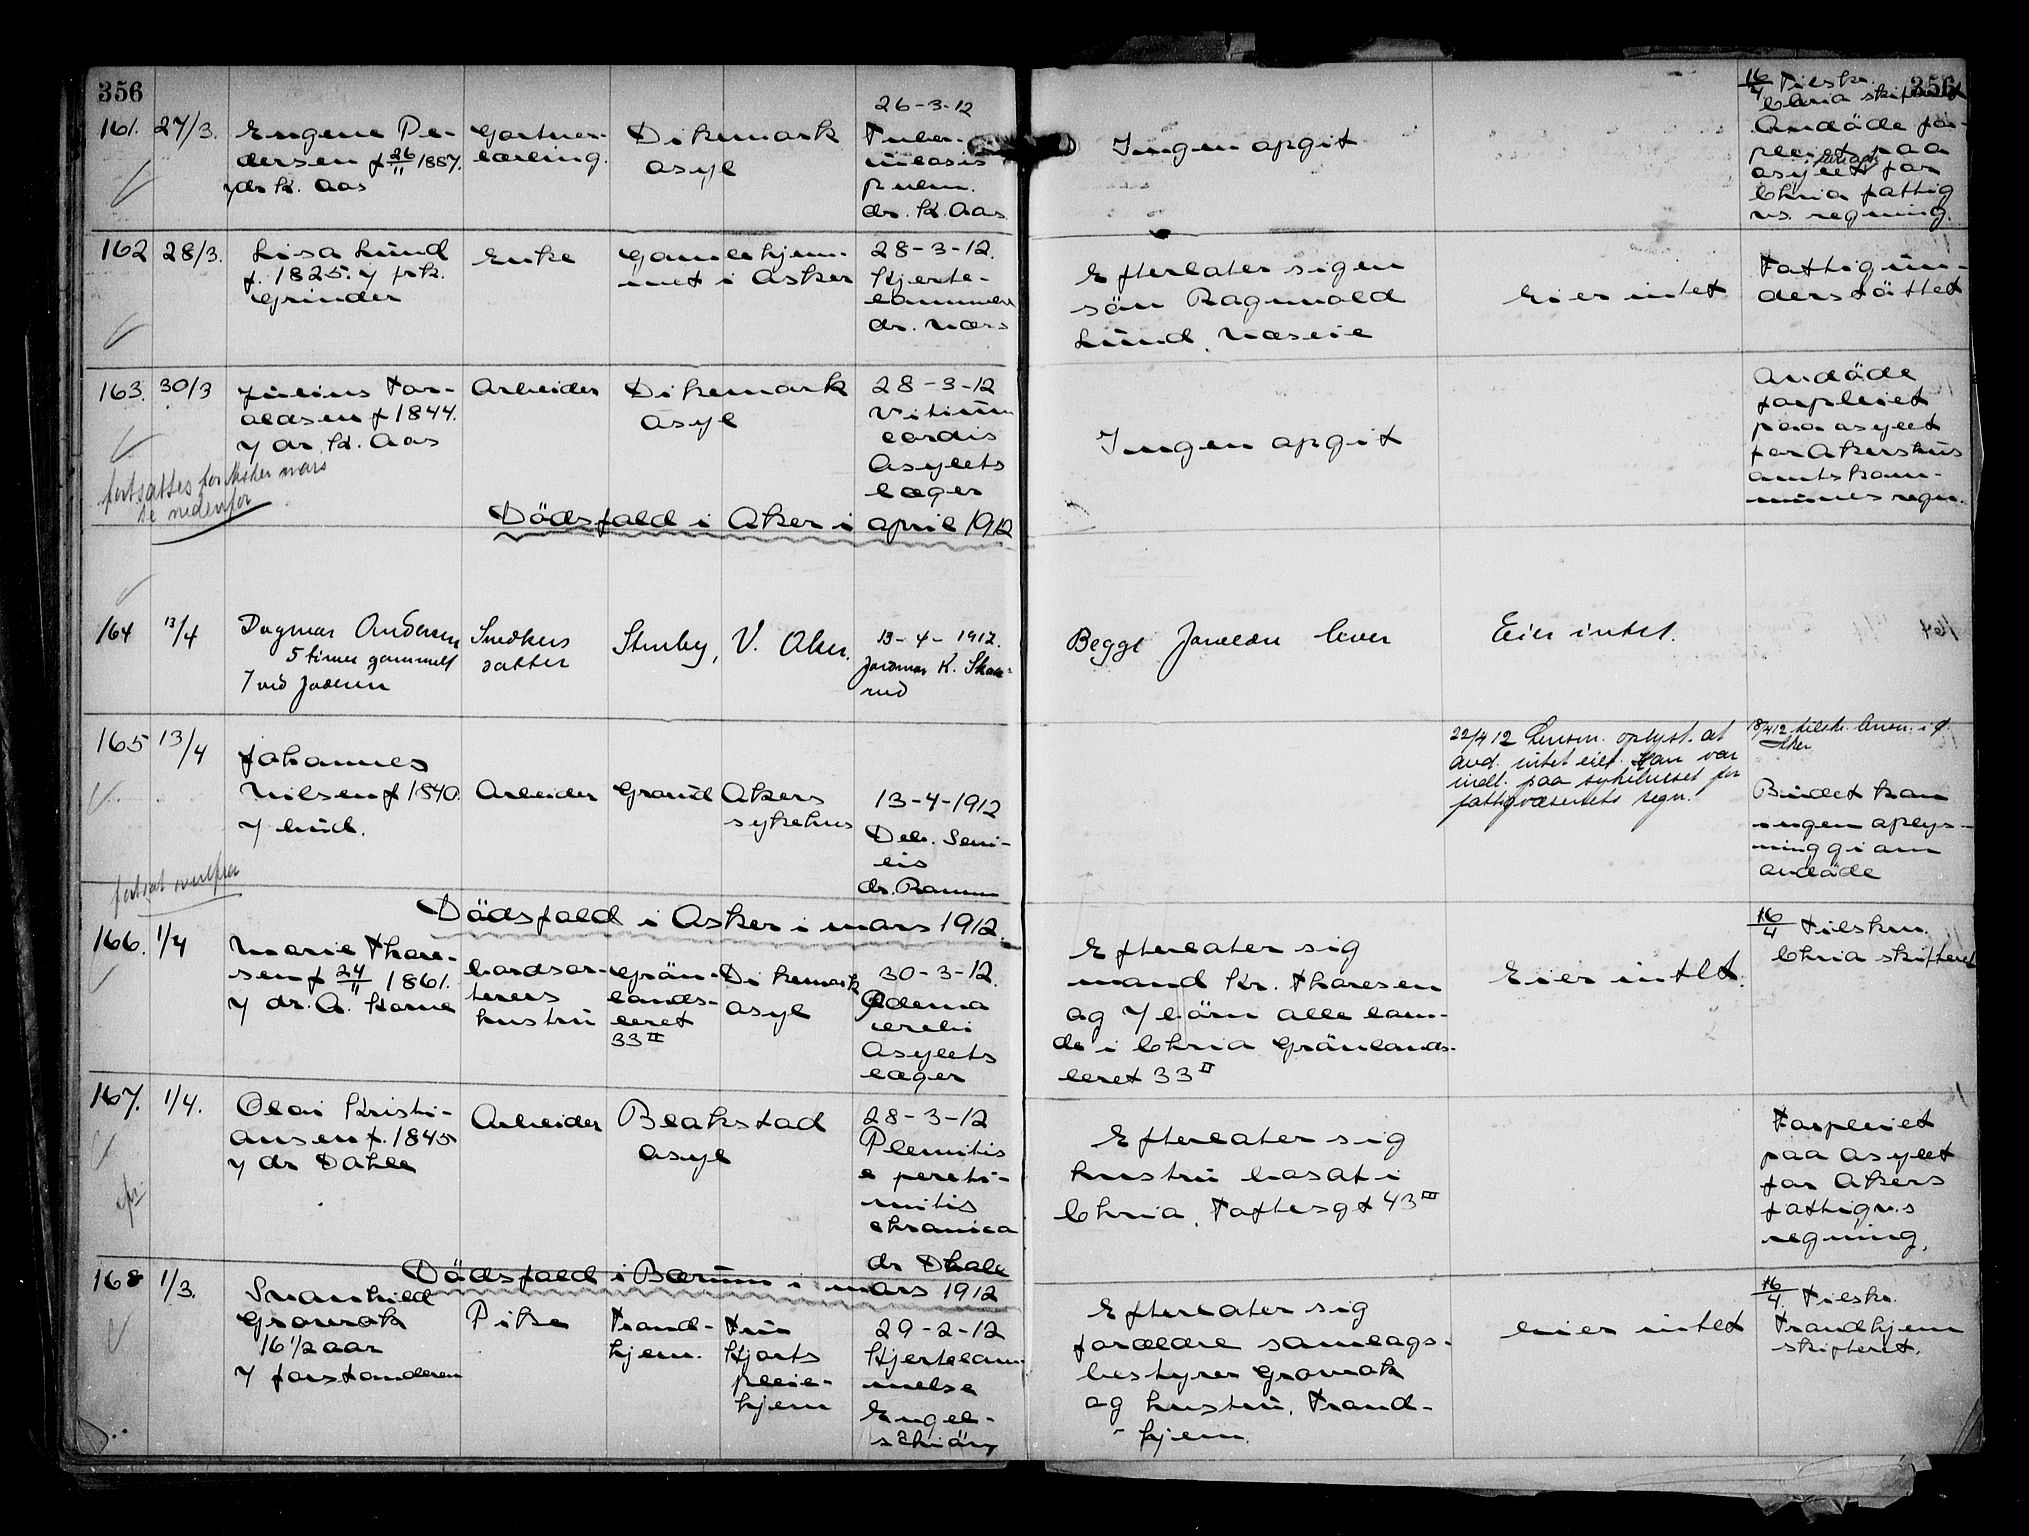 356
356
161. 27/3.
Eugene Pe-
dersen f 26/11 1887.
v/ dr K. Aas
Gartner-
lærling.
Dikemark
asyl
26-3-12
Tuber-
culosis
pulm.
dr. K. Aas
Ingen opgit
16/4 Tilskr.
Chria skifteret
Avdöde for-
pleiet paa
asylet for
Chria fattig
vs. regning.
162 28/3.
Lisa Lund
f. 1825. v/ frk.
Grinder
Enke
Gamlehjem-
met i Asker
28-3-12.
Hjerte-
lammelse
dr. Næss
Efterlater sig en
sön Ragnvald
Lund, Næseie
Eier intet
Fattigun-
derstöttet
163. 30/3
Julius Tor-
aldsen f 1844.
v/ dr K. Aas
Arbeider
Dikemark
asyl
28-3-12
Vitium
cordis
Asylets
læge
Ingen opgit
Avdöde
forpleiet
paa asylet
for Akershus
amtskom-
munes regn.
fortsættes for Asker mars
se nedenfor
Dödsfald i Aker i april 1912
164 13/4
Dagmar Andersen
5 timer gammelt
v/ ved faderen
Snedkers
datter
Stenby, V. Aker.
13-4-1912.
Jordmor K. Skaa-
rud
Begge foreldre lever
Eier intet.
165 13/4
Johannes
Nilsen f 1840.
v/ bud.
Arbeider
Grorud
Akers
sykehus
13-4-1912
Deb. Seni-
lis
dr. Ramm
22/4 12 Lensm. oplyst. at
avd. intet eiet. Han var
indl. paa sykehuset for
fattigvæsenets regn.
18/4 12 tilskr. lensm. i Ø.
Aker
Budet kan
ingen oplys-
ning gi om
avdöde
fortsat ovenfra
Dödsfald i Asker i mars 1912.
166. 1/4
Marie Thore-
sen f 24/11 1861.
v/ dr. A. Horne
bordsor-
terers
hustru
Grön-
lands-
leret
33 II
Dikemark
asyl
30-3-12.
Ødema
cerebri
Asylets
læge
Efterlater sig
mand Kr. Thoresen
og 7 börn alle boen-
de i Chria Grönlands-
leret 33 II
Eier intet.
16/4 Tilskrn.
Chria skifteret
167. 1/4.
Olai Kristi-
ansen f. 1845
v/ dr Dahle
Arbeider
Blakstad
asyl
28-3-12
Pleuritis
e perito-
nitis
chronica
dr Dhale
Efterlater sig
hustru bosat i
Chria, Toftesgt 43 III
Forpleiet
paa asylet
for Akers
fattigv.s
regning.
Dödsfald i Bærum i mars 1912
168 1/3.
Svanhild
Gramak
16 1/2 aar
v/ forstanderen
Pike
Trond-
hjem.
Fru
Hjorts
pleie-
hjem
29-2-12
Hjertelam-
melse
Engel-
schiön
Efterlater sig
forældre samlags-
bestyrer Gramak
og hustru, Trond-
hjem.
Eier intet
16/4. Tilskr.
Trondhjem
skifteret.